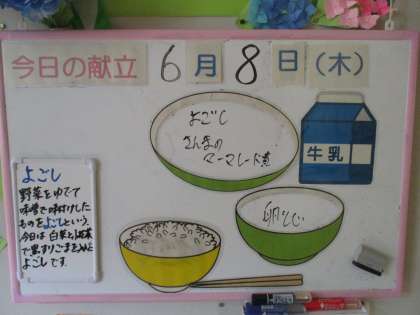 今日の献立 6月8日(木)
よごし
さんまの
マーマレード煮
牛乳
卵とじ
よごし
野菜をゆでて
味噌で味付けした
ものをよごしという。
今日は白菜と
で黒すりごまを
よごしです。